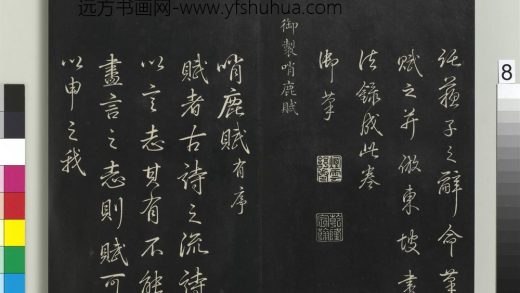 远方书画网-www.yfshuhua.com
託蘇子之辭命筆
賦之并倣東坡書
法錄成此卷
御筆
御製哨鹿賦
哨鹿賦有序
賦者古詩之流詩
以言志其有不能
盡言之志則賦可
以申之我
8